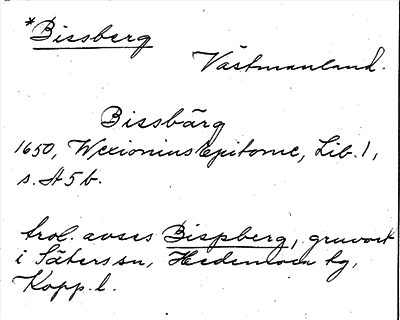 *Bissberg
Västmanland.
Bissbärg
1650, Wexionius Epitome, Lib. 1,
s. A 5 b.
trol. avses Bispberg, gruvort
i Säters sn, Hedemora tg,
Kopp. l.